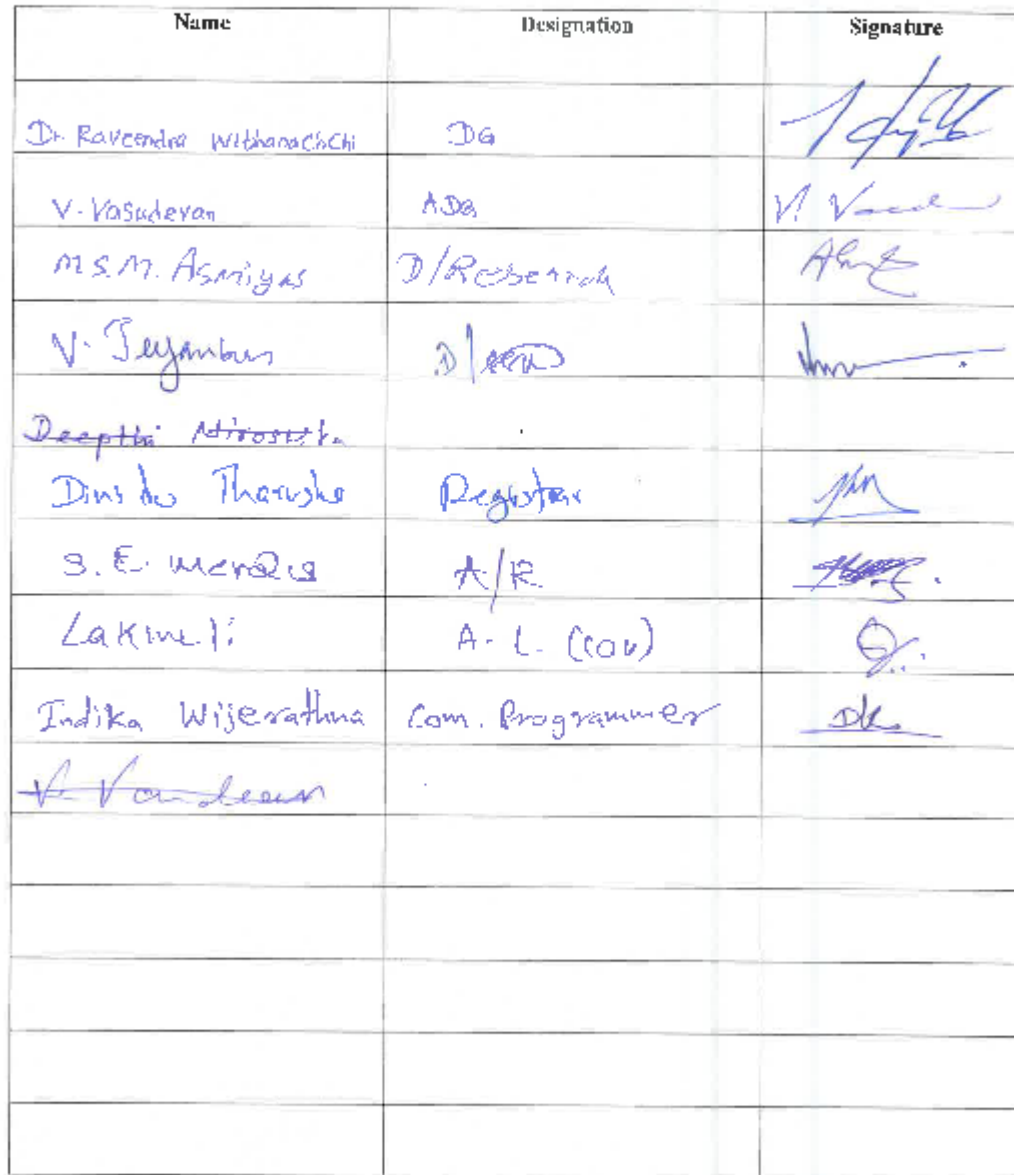 Name Designation Signature
Dr. Raveendra Withanachchi DG
V. Vasudevan ADG V. Vasude
M.S.M. Asmiyas D/Research
V. Jeyanban D/
Deepthi Nirosha
Dinisha Tharusha Registrar
S.E. Mendis A/R
Lakmeli A.L. (Cov)
Indika Wijerathna Com. Programmer
V. Vandeean